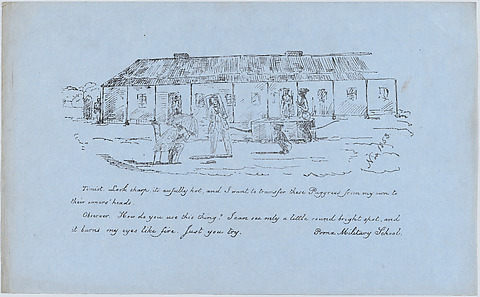 Nov. 1868.
Timist. Look sharp, its awfully hot, and I want to transfer these Puggrees from my own to
their owners' heads.
Observer. How do you use this thing? I can see only a little round bright spot, and
it burns my eyes like fire. Just you try.
Poona Military School.